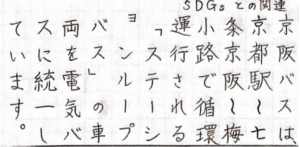 SDGsとの関連
京阪バスは
京都駅〜七
条京阪〜梅
小路で循環
運行される
「ステーシ
ョンループ
バス」の車
両を電気バ
スに統一し
ています。